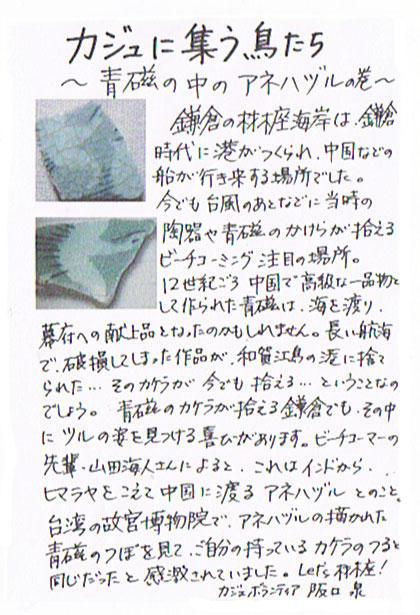 カジュに集う鳥たち
～青磁の中のアネハヅルの巻～
鎌倉の材木座海岸は、鎌倉
時代に港がつくられ、中国などの
船が行き来する場所でした。
今でも台風のあとなどに当時の
陶器や青磁のかけらが拾える
ビーチコーミング注目の場所。
12世紀ごろ中国で高級な一品物と
して作られた青磁は、海を渡り、
幕府への献上品となったのかもしれません。長い航海
で、破損してしまった作品が、和賀江島の港に捨て
られた…そのカケラが今でも拾える…ということなの
でしょう。青磁のカケラが拾える鎌倉でも、その中
にツルの姿を見つける喜びがあります。ビーチコーマーの
先輩・山田海人さんによると、これはインドから、
ヒマラヤをこえて中国に渡るアネハヅルとのこと。
台湾の故宮博物院で、アネハヅルの描かれた
青磁のつぼを見て、ご自分の持っているカケラのつると
同じだったと感激されていました。Let's材木座!
カジュボランティア 阪口 泉